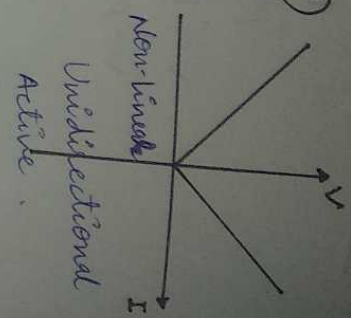 V
I
Non-linear
Unidirectional
Active.